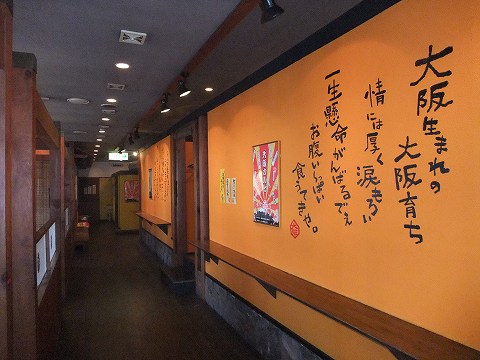 大阪生まれの
大阪育ち
情には厚く
涙もろい
一生懸命がんばるでぇ
お腹いっぱい
食うてきや。